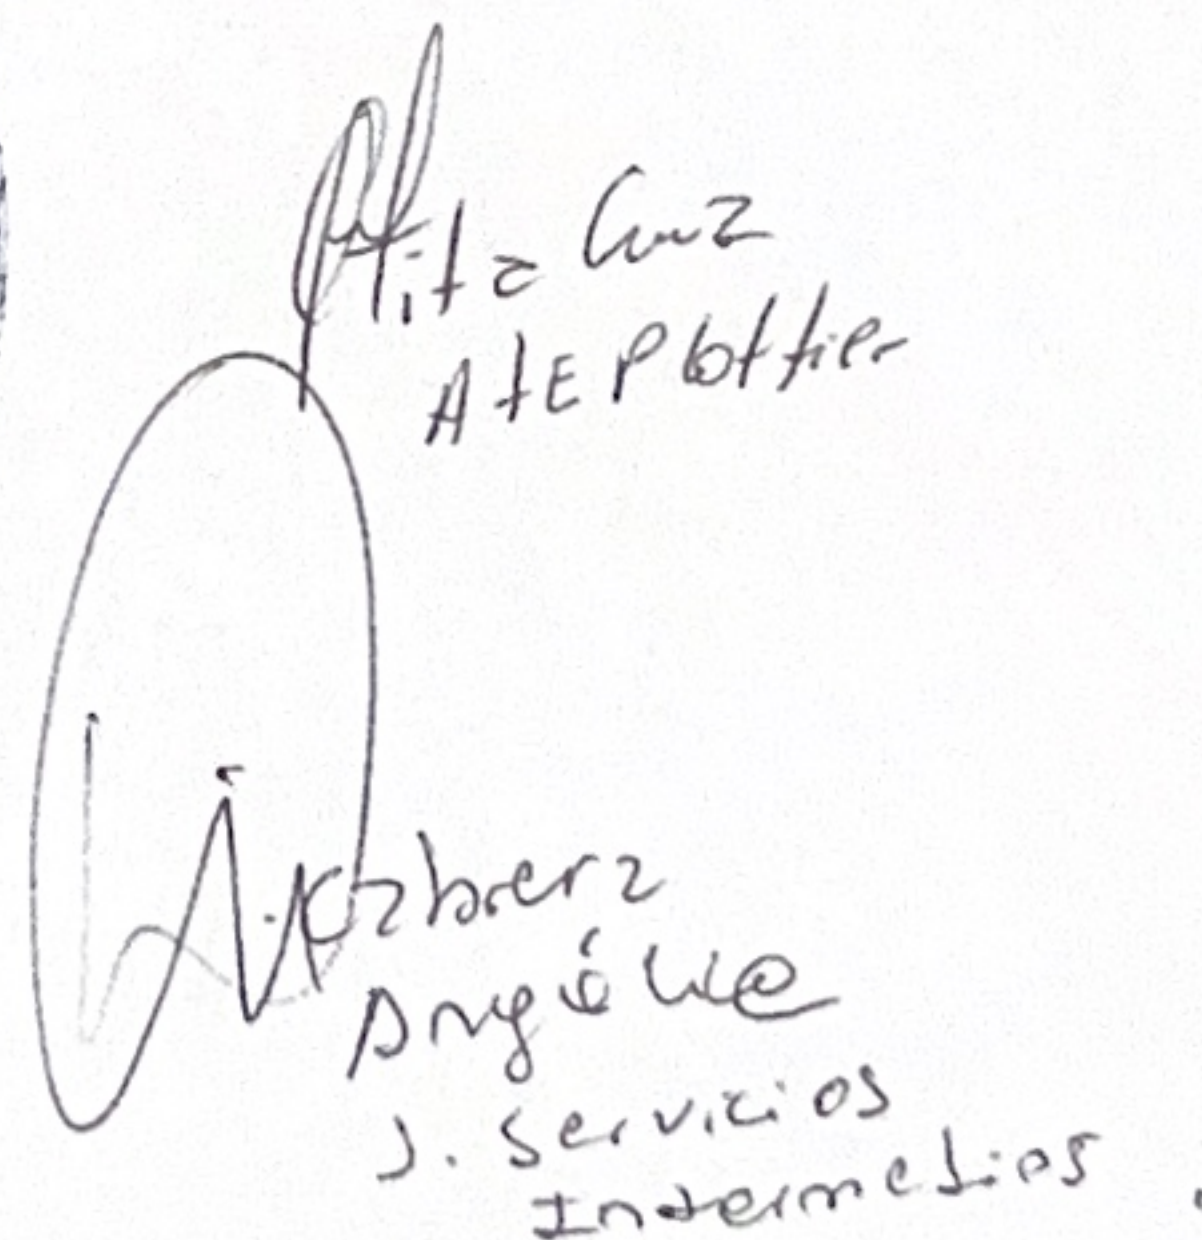 Rita Cruz
ATE Plottier
Cabrera
Angélica
J. Servicios
Intermedios